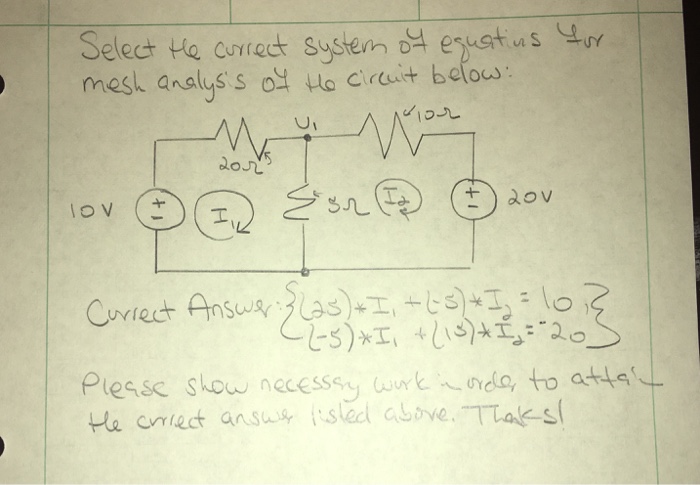 Select the correct system of equations for
mesh analysis of the circuit below:
U1 10Ω
20Ω
10V + - I1 5Ω I2 + - 20V
Correct Answer: {(25)*I1 + (-5)*I2 = 10,
(-5)*I1 + (15)*I2 = -20}
Please show necessary work in order to attain
the correct answer listed above. Thanks!